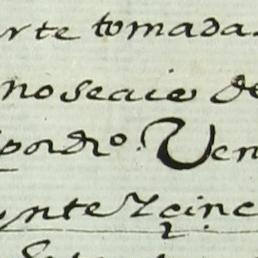 rte tomada
no seaie de
por dho. Ven
inte Zcinc